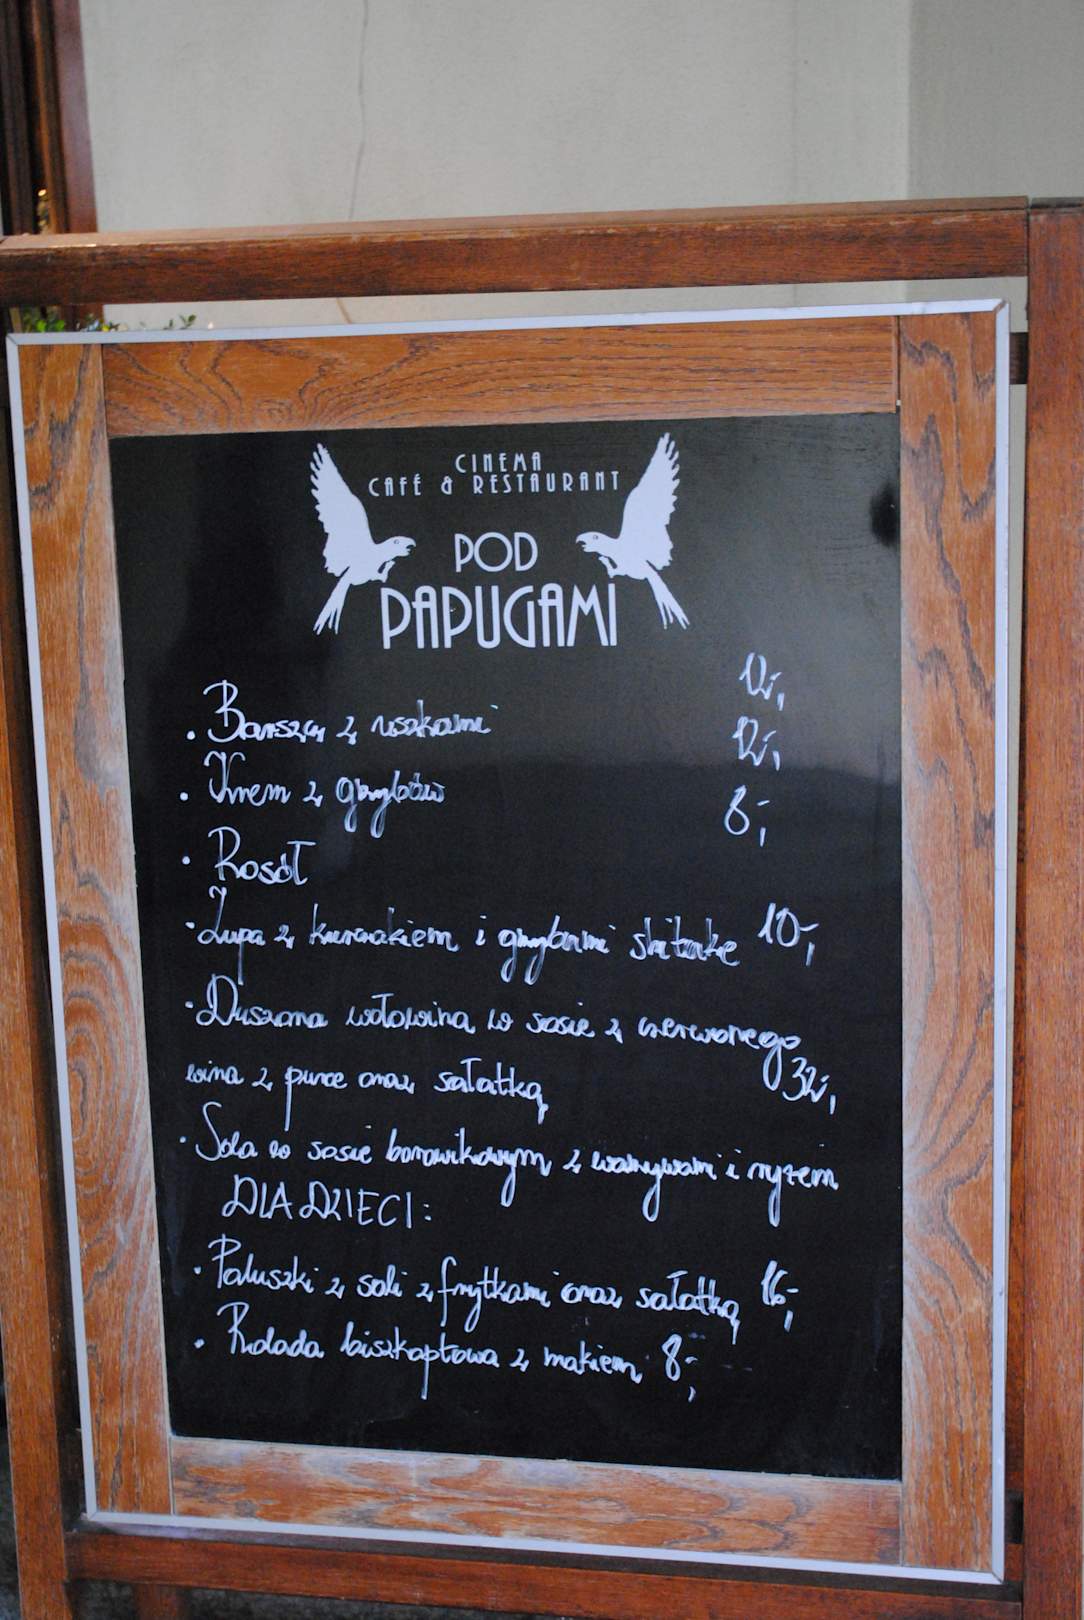 CINEMA
CAFÉ & RESTAURANT
POD
PAPUGAMI
• Barszcz z uszkami 12,-
• Krem z grzybów 12,-
• Rosół 8,-
• Zupa z kurczakiem i grzybami shitake 10,-
• Duszona wołowina w sosie z czerwonego
wina z puree oraz sałatką 32,-
• Sola w sosie borowikowym z warzywami i ryżem
DLA DZIECI:
• Paluszki z soli z frytkami oraz sałatką 16,-
• Rolada biszkoptowa z makiem 8,-